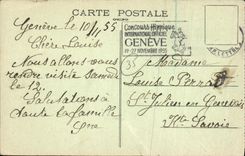 CARTE POSTALE
Genève le 10/11/55
Chère Louise
Nous allons vous
rendre visite samedi
le 12.
Salutations à
toute la famille
Concours Hippique
INTERNATIONAL OFFICIEL
GENÈVE
-27 NOVEMBRE 1955
Madame
Louise
St Julien en Genevois
Hte Savoie